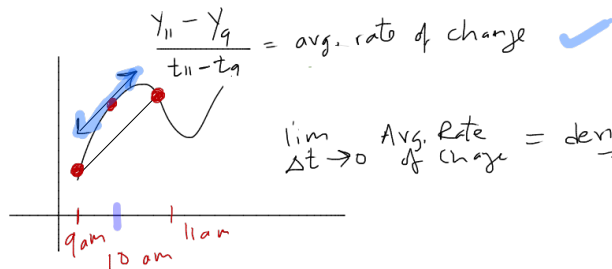 y₁₁ − y₉
t₁₁ − t₉
= avg. rate of change
lim Avg. Rate
Δt → 0 of Chage =
9 am
10 am
11 am